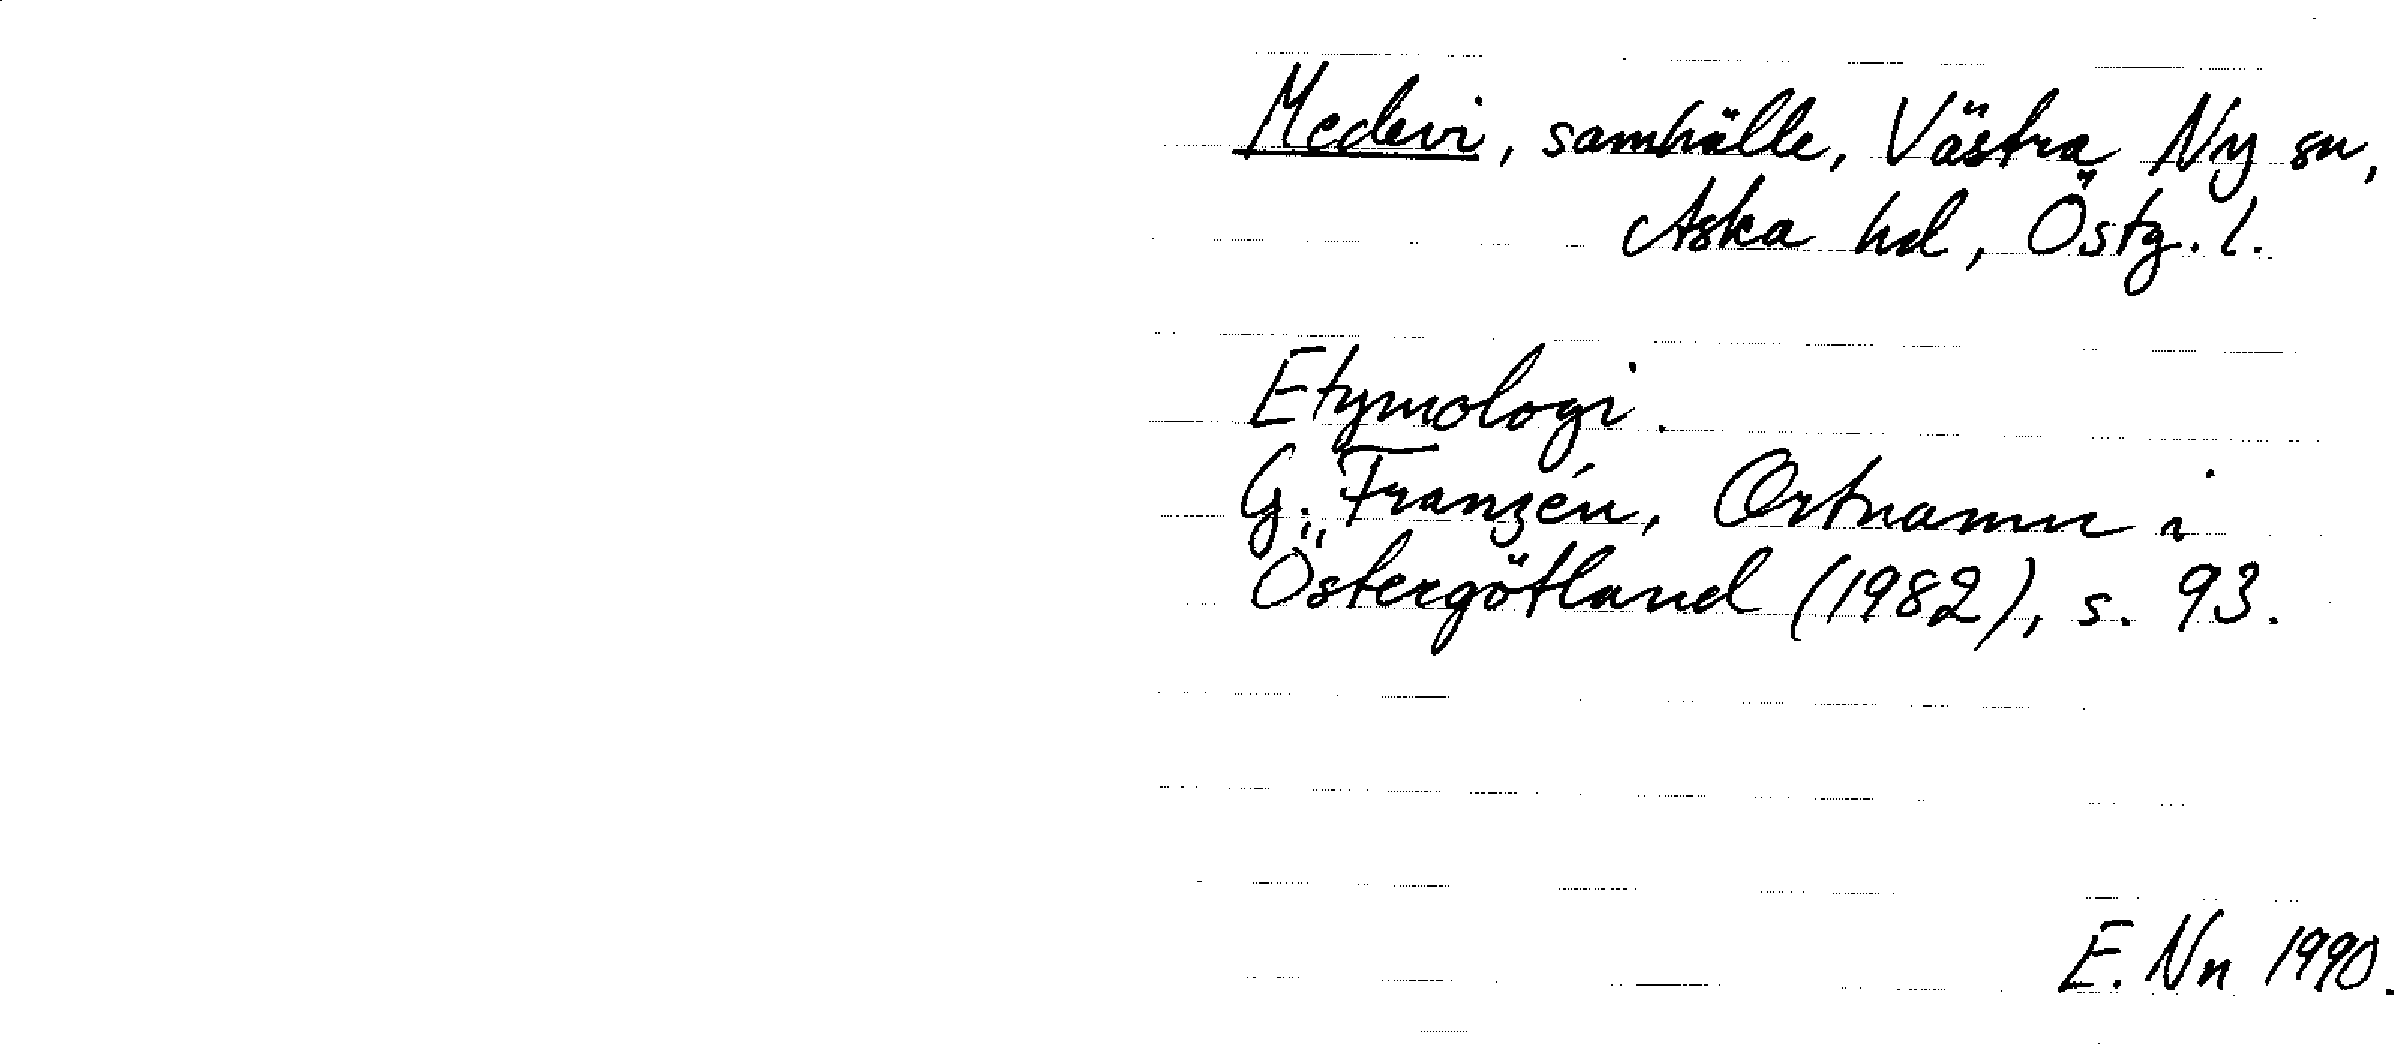 Medevi, samhälle, Västra Ny sn,
Aska hd, Östg. l.
Etymologi.
G. Franzén, Ortnamn i
Östergötland (1982), s. 93.
E. Nn 1990.